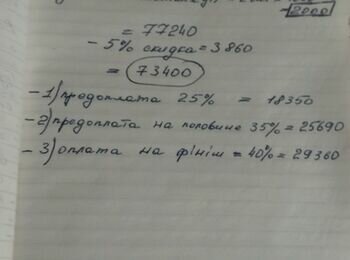 2000
= 77240
- 5% скидка = 3860
= 73400
- 1) предоплата 25% = 18350
- 2) предоплата на половине 35% = 25690
- 3) оплата на фініш = 40% = 29360